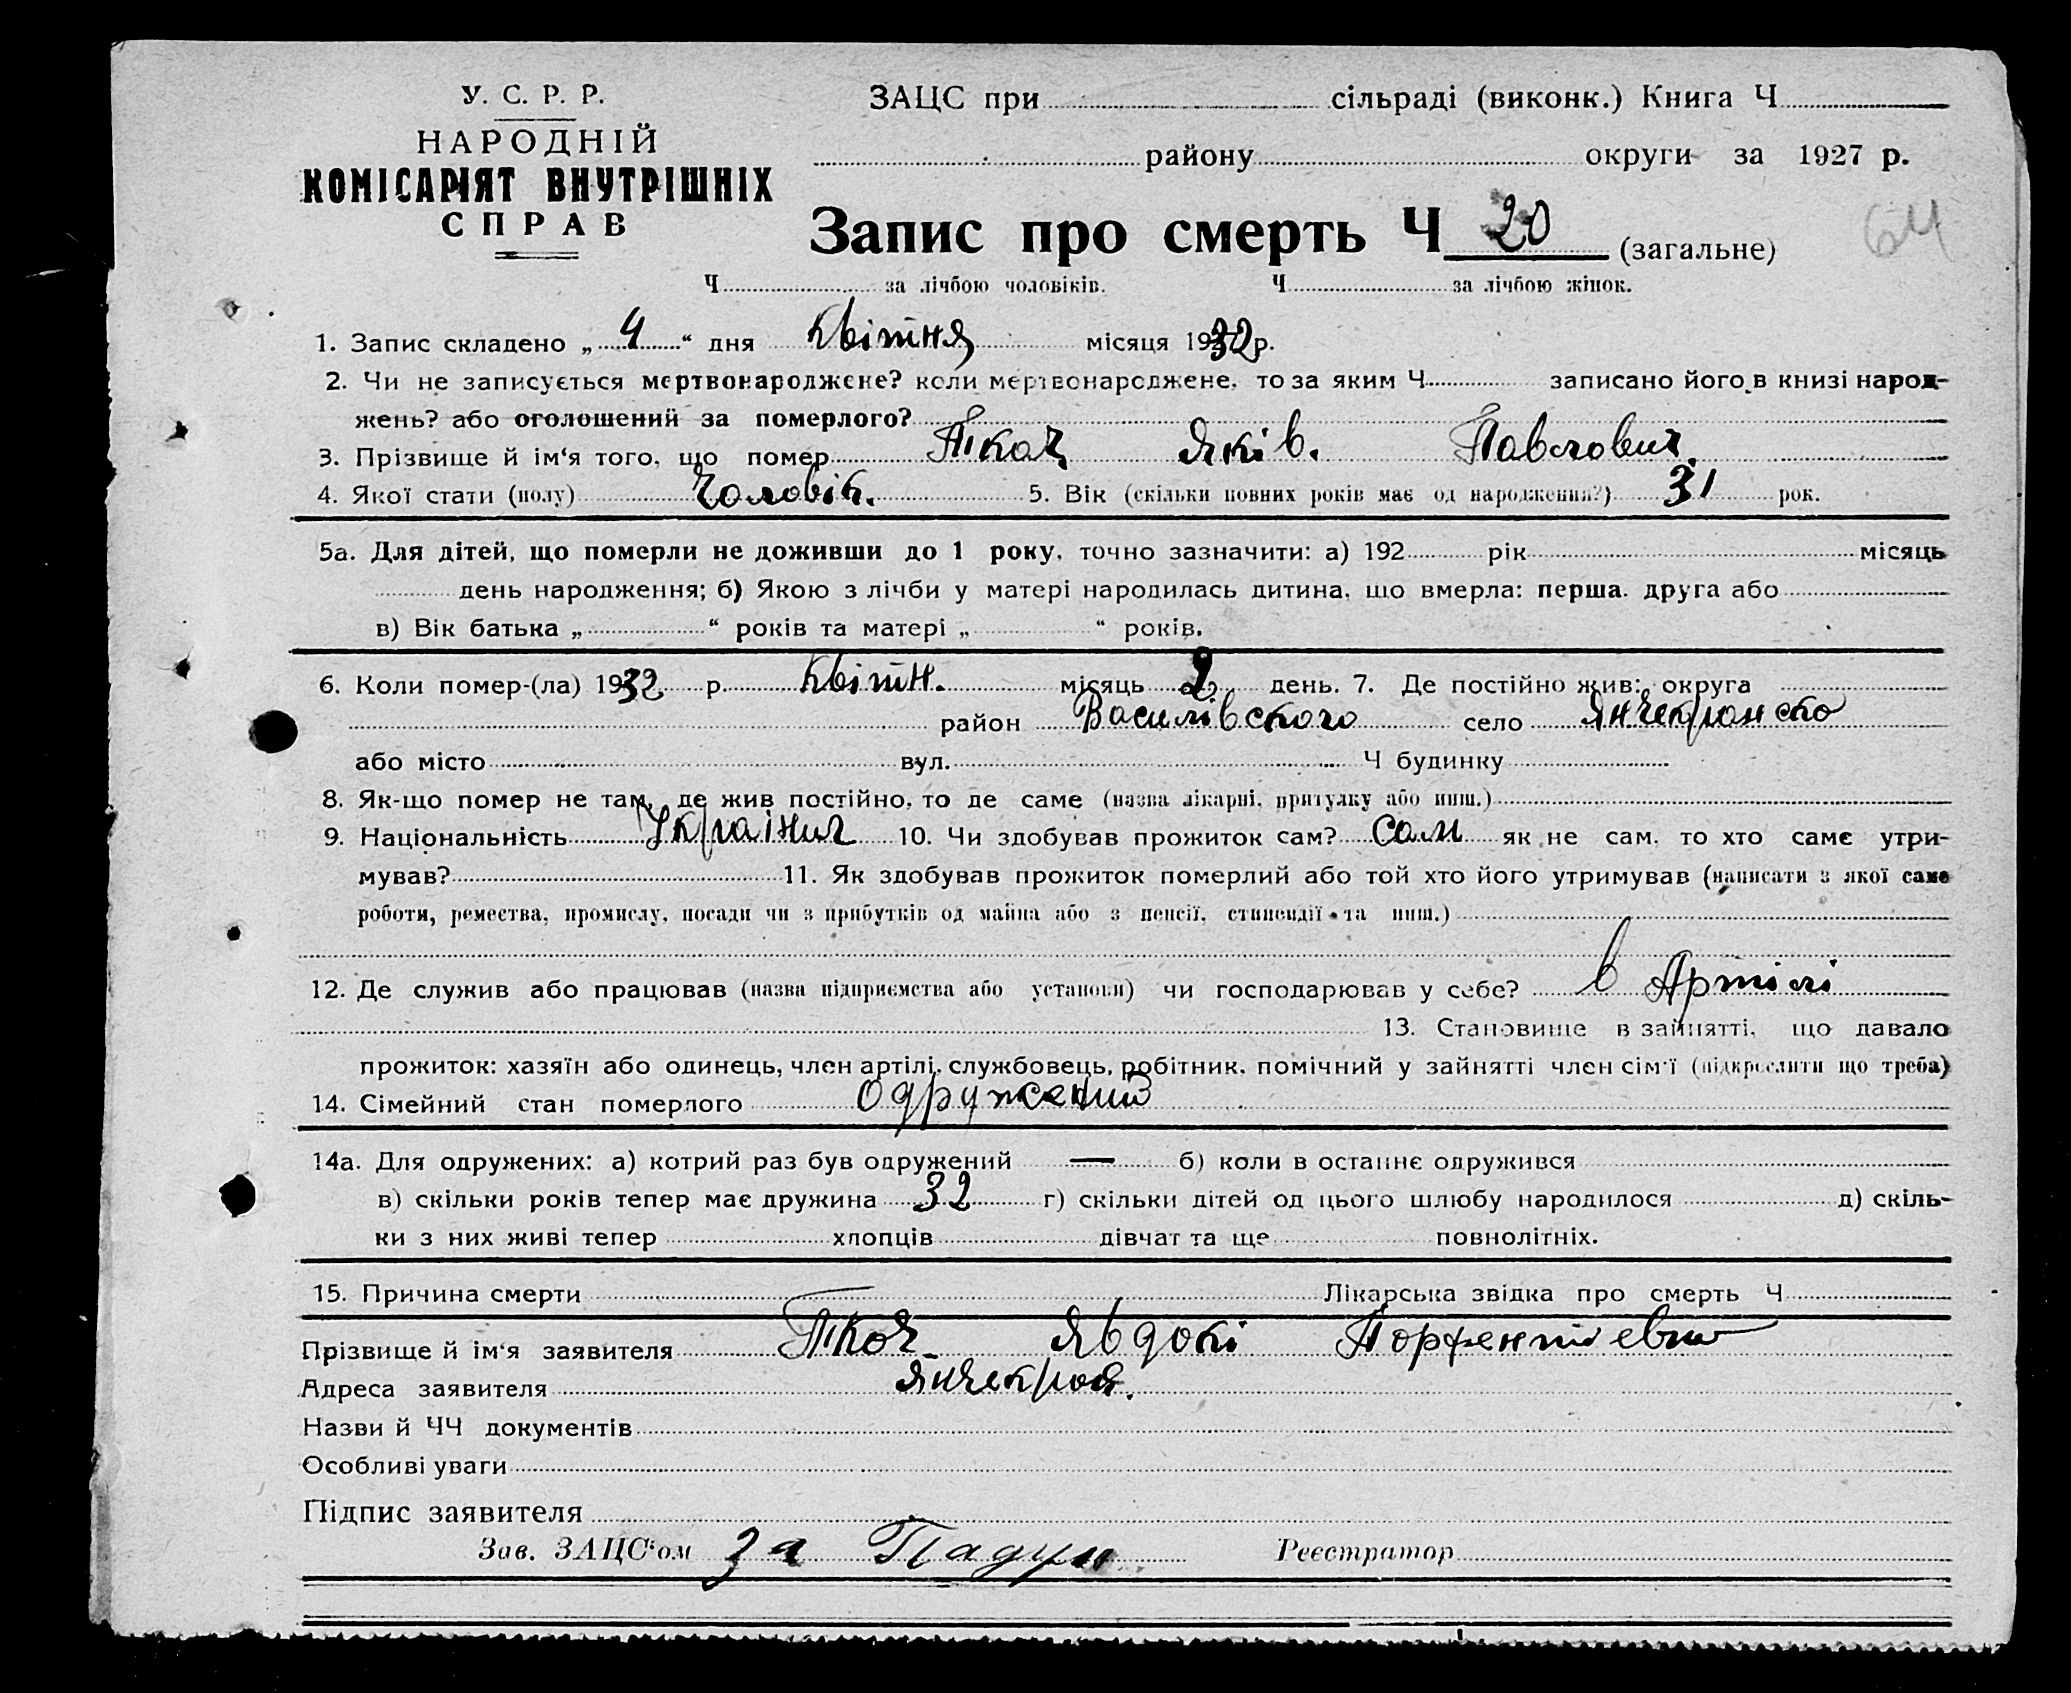 У. С. Р. Р.
НАРОДНІЙ
КОМІСАРІЯТ ВНУТРІШНІХ
СПРАВ
ЗАЦС при сільраді (виконк.) Книга Ч
району округи за 1927 р.
Запис про смерть Ч 20 (загальне)
64
Ч за лічбою чоловіків. Ч за лічбою жінок.
1. Запис складено „ 4 “ дня Квітня місяця 1932 р.
2. Чи не записується мертвонароджене? коли мертвонароджене, то за яким Ч записано його в книзі народ-
жень? або оголошений за померлого?
3. Прізвище й ім‘я того, що помер Ткач Яків. Павлович.
4. Якої стати (полу) Чоловік. 5. Вік (скільки повних років має од народження?) 31 рок.
5а. Для дітей, що померли не доживши до 1 року, точно зазначити: а) 192 рік місяць
день народження; б) Якою з лічби у матері народилась дитина, що вмерла: перша. друга або
в) Вік батька „ “ років та матері „ “ років.
6. Коли помер-(ла) 1932 р. Квітн. місяць 2 день. 7. Де постійно жив: округа
район Василівского село Янчекранско
або місто вул. Ч будинку
8. Як-що помер не там, де жив постійно, то де саме (назва лікарні, притулку або инш.)
9. Національність Українич 10. Чи здобував прожиток сам? Сам як не сам, то хто саме утри-
мував? 11. Як здобував прожиток померлий або той хто його утримував (написати з якої саме
роботи, ремества, промислу, посади чи з прибутків од майна або з пенсії, стипендії та инш.)
12. Де служив або працював (назва підприємства або установи) чи господарював у себе? в Артілі
13. Становище в зайнятті, що давало
прожиток: хазяїн або одинець, член артілі, службовець, робітник, помічний у зайнятті член сім‘ї (підкреслити що треба)
14. Сімейний стан померлого Одружений
14а. Для одружених: а) котрий раз був одружений — б) коли в останнє одружився
в) скільки років тепер має дружина 32 г) скільки дітей од цього шлюбу народилося д) скіль-
ки з них живі тепер хлопців дівчат та ще повнолітніх.
15. Причина смерти Лікарська звідка про смерть Ч
Прізвище й ім‘я заявителя Ткач Явдокі
Адреса заявителя
Назви й ЧЧ документів
Особливі уваги
Підпис заявителя
Зав. ЗАЦС‘ом за Падун Реєстратор